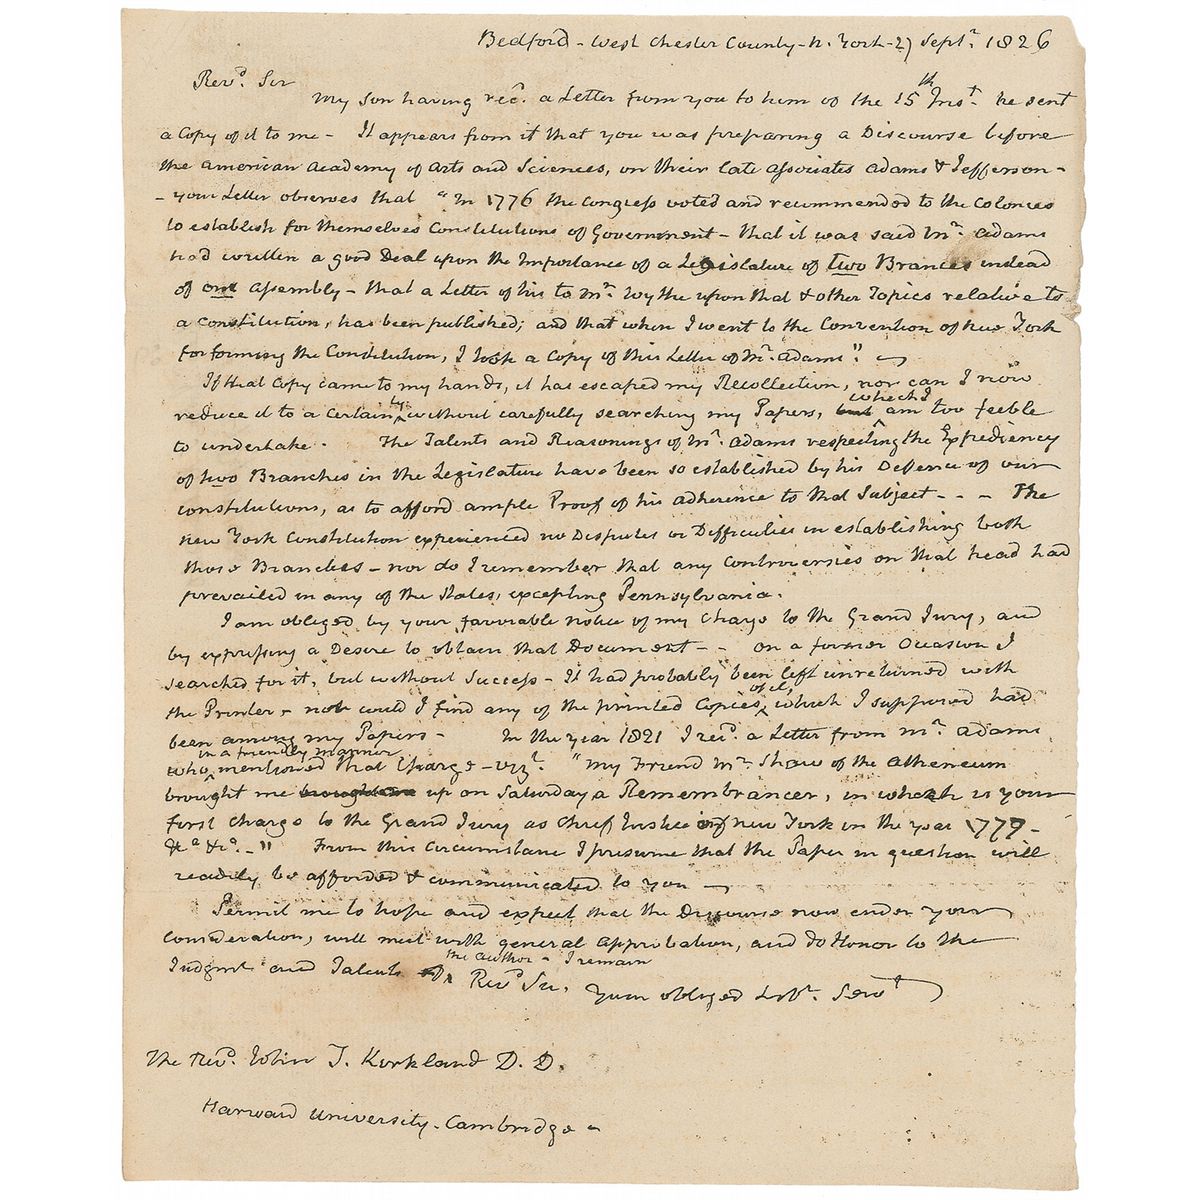 Bedford - West chester County - N. York - 27 Septr. 1826
Revd. Sir
My son having recd. a Letter from you to him of the 15th Inst. he sent
a Copy of it to me - It appears from it that you was preparing a Discourse before
the American Academy of Arts and Sciences, on their late associates Adams & Jefferson -
- your Letter observes that "In 1776 the Congress voted and recommended to the Colonies
to establish for themselves Constitutions of Government - that it was said Mr. Adams
had written a good Deal upon the Importance of a Legislature of two Brances instead
of one assembly - that a Letter of his to Mr. Wythe upon that & other Topics relative to
a constitution, has been published; and that when I went to the Convention of New York
for forming the Constitution, I took a Copy of this Letter of Mr. Adams". -
If that Copy came to my hands, it has escaped my Recollection, nor can I now
reduce it to a certainty without carefully searching my Papers, but which I am too feeble
to undertake - The Talents and Reasonings of Mr. Adams respecting the Expediency
of two Branches in the Legislature have been so established by his Defence of our
constitutions, as to afford ample Proof of his adherence to that Subject - - - The
New York Constitution experienced no Disputes or Difficulties in establishing both
those Branches - nor do I remember that any Controversies on that head had
prevailed in any of the States, excepting Pennsylvania.
I am obliged by your favorable notice of my Charge to the Grand Jury, and
by expressing a Desire to obtain that Document - - on a former Occasion I
searched for it, but without Success - It had probably been left unreturned with
the Printer - nor could I find any of the printed Copies of it, which I supposed had
been among my Papers - In the year 1821 I recd. a Letter from Mr. Adams
who in a friendly manner mentioned that Charge - vizt. "my Friend Mr. Shaw of the Atheneum
brought me up on Saturday a Remembrancer, in which is your
first Charge to the Grand Jury as Chief Justice of New York in the year 1779 -
&c &c. - " From this Circumstance I presume that the Paper in question will
readily be afforded & communicated to you -
Permit me to hope and expect that the Discourse now under your
Consideration, will meet with general approbation, and do Honor to the
Judgmt and Talents of the author - I remain
Revd Sir, your obliged & obt. Servt
The Revd. John T. Kirkland D. D.
Harvard University - Cambridge -